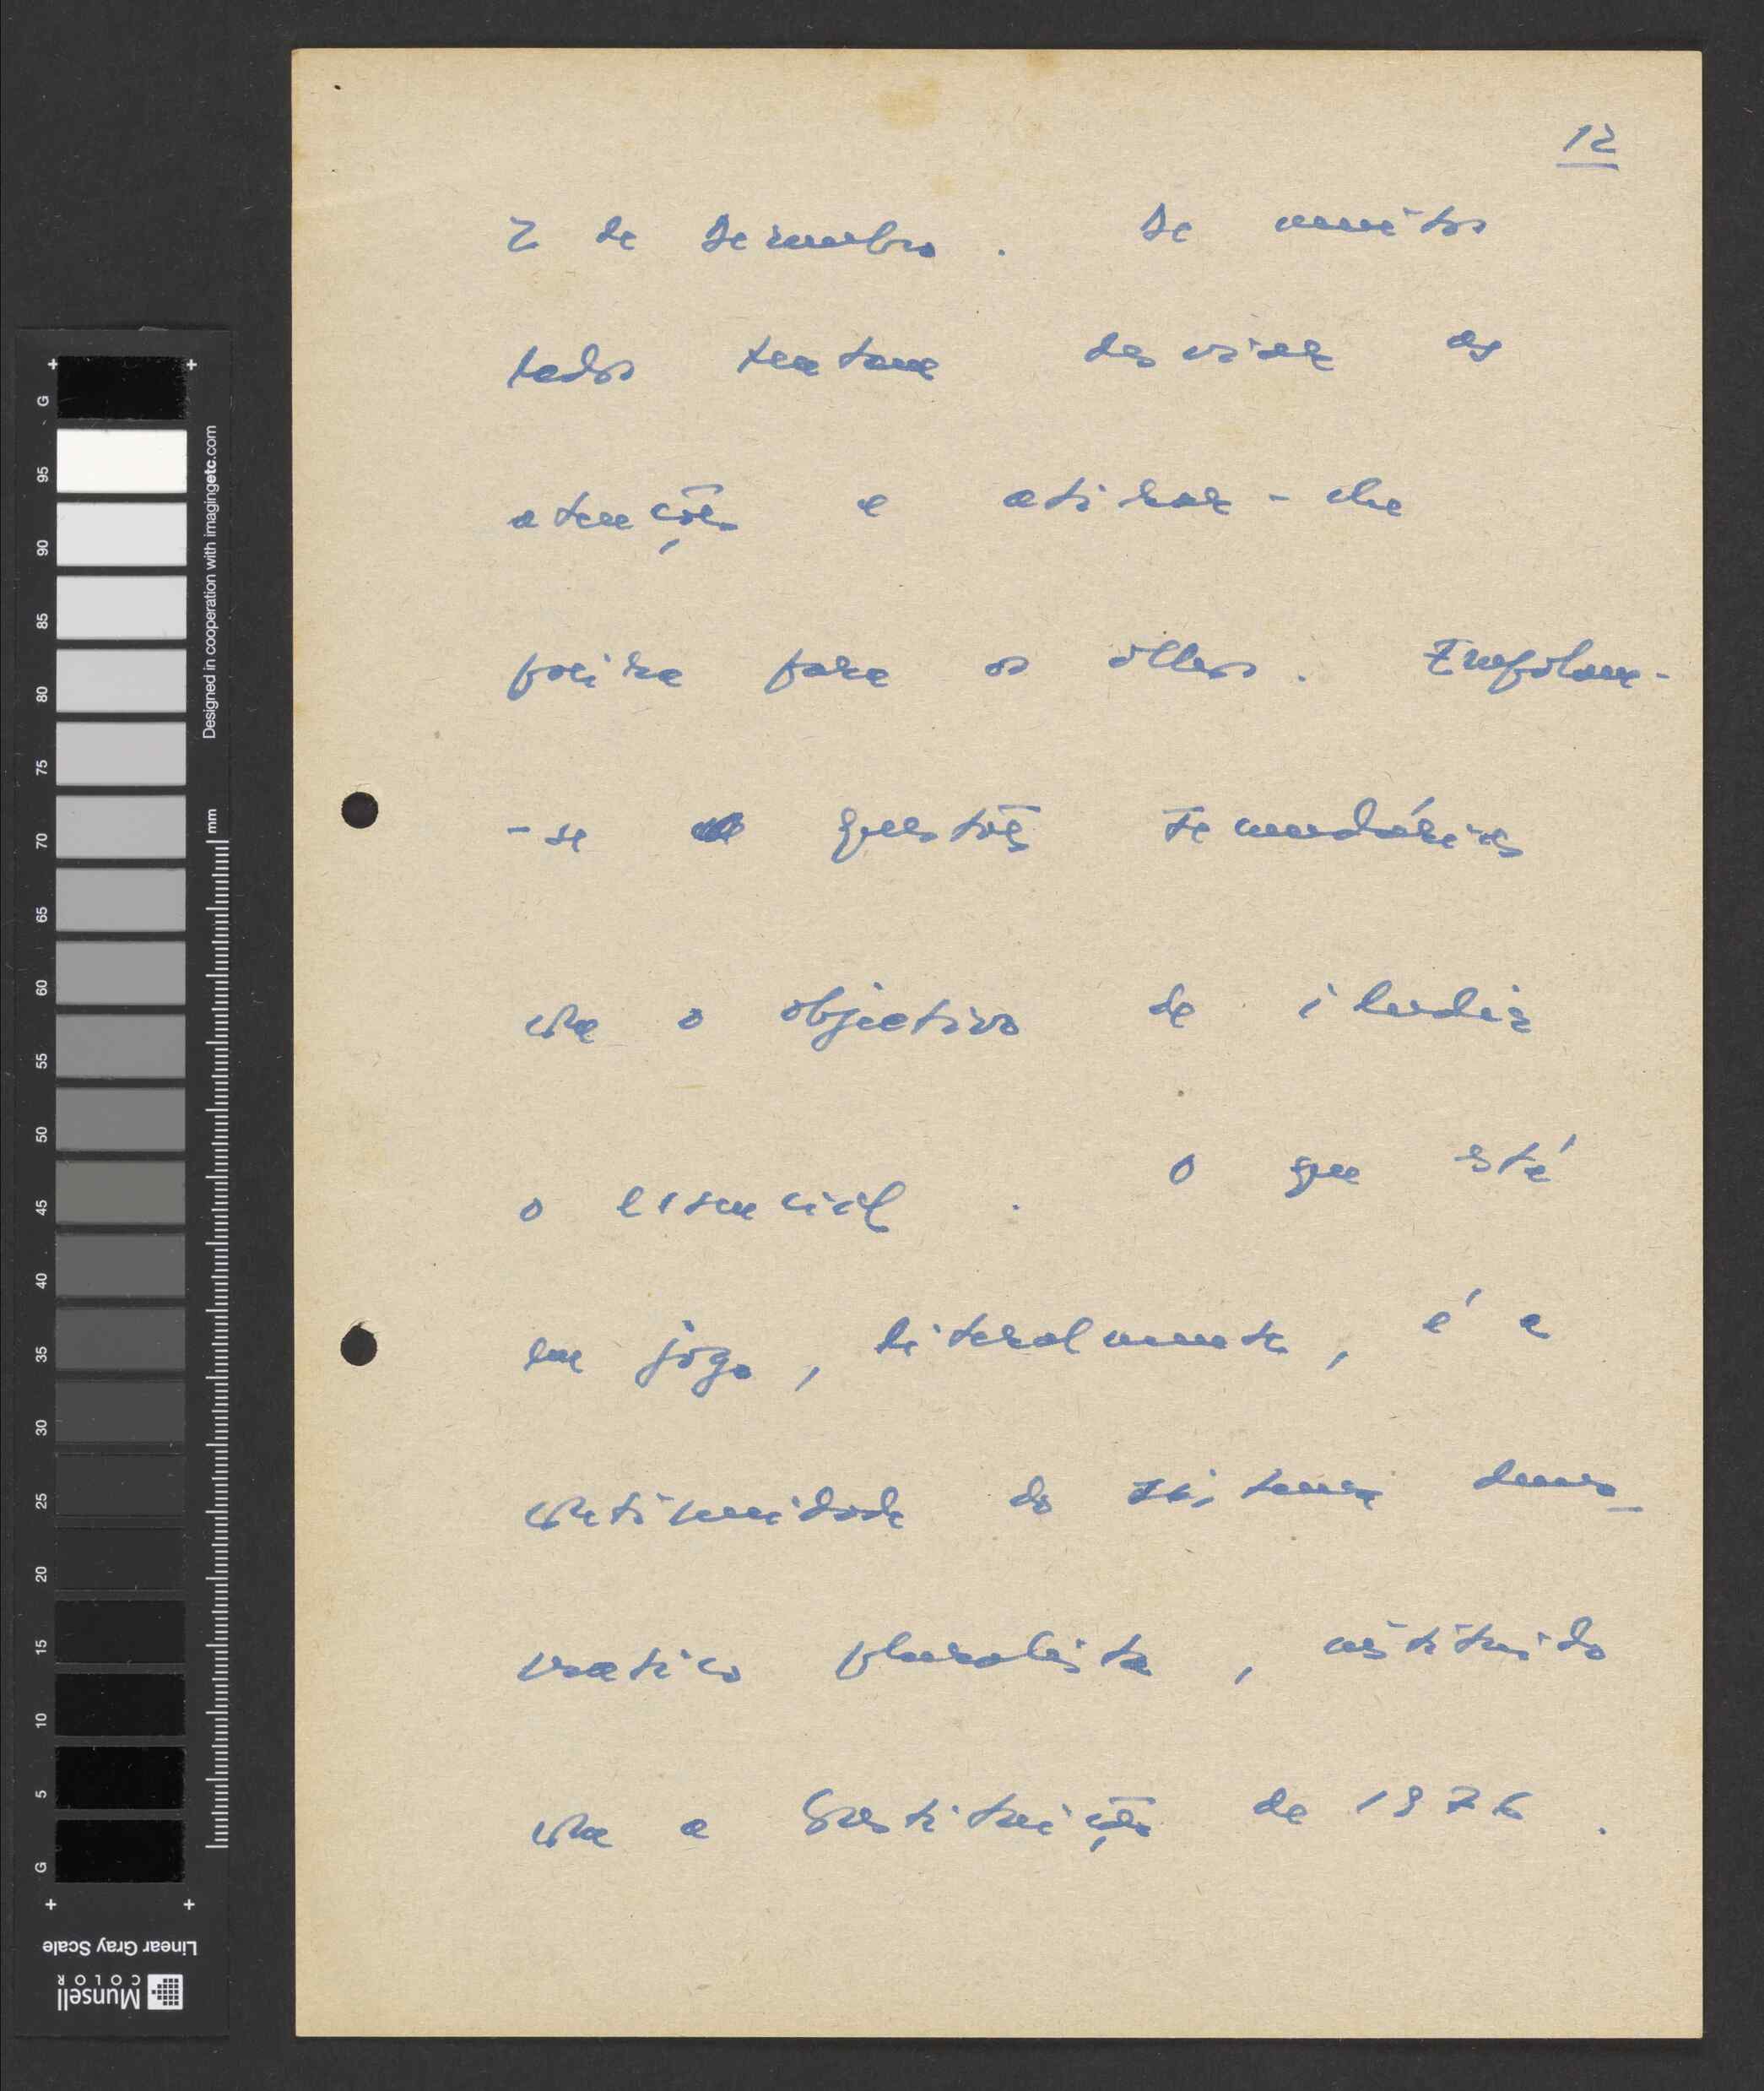 12
2 de Dezembro. De muitos
lados tentam desviar as
atenções e atirar-lhe
poeira para os olhos. Empolam-
-se questões secundárias
com o objectivo de iludir
o essencial. O que está
em jogo, literalmente, é a
continuidade do sistema demo-
crático pluralista, instituído
com a Constituição de 1976.
G 95 90 85 80 75 70 65 60 55 50 45 40 35 30 25 20 15 10 5 G
Designed in cooperation with imagingetc.com
mm
Linear Gray Scale
Munsell
COLOR